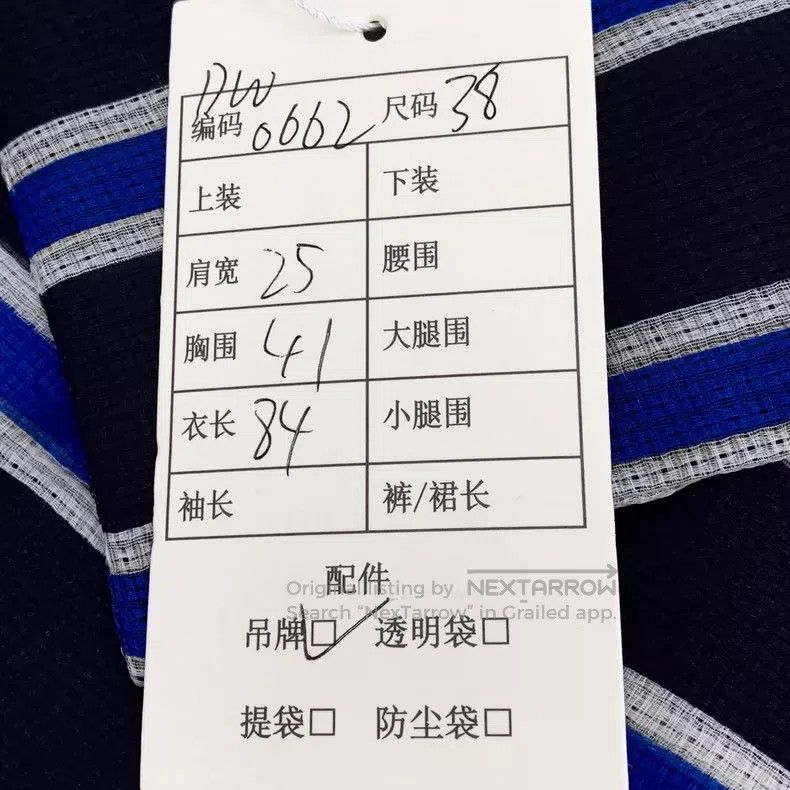 DW
编码 0662 尺码 38
上装 下装
肩宽 25 腰围
胸围 41 大腿围
衣长 84 小腿围
袖长 裤/裙长
配件
Original listing by NEXTARROW
Search "NexTarrow" in Grailed app.
吊牌☑ 透明袋□
提袋□ 防尘袋□